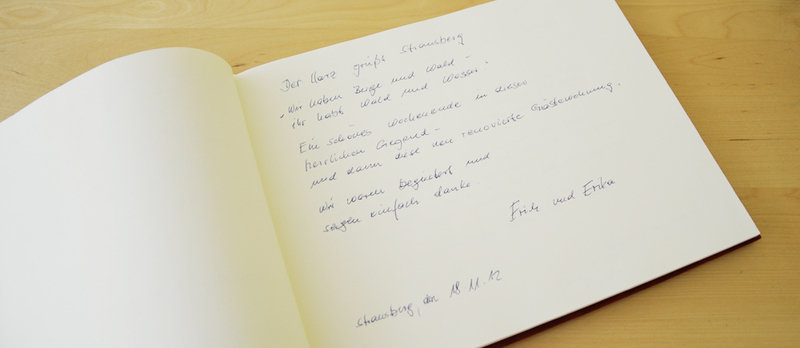 Der Harz grüßt Strausberg
"Wir haben Berge und Wald -
ihr habt Wald und Wasser."
Ein schönes Wochenende in dieser
herrlichen Gegend -
und dann diese neu renovierte Gästewohnung.
Wir waren begeistert und
sagen einfach danke
Fritz und Erika
Strausberg, den 18.11.12